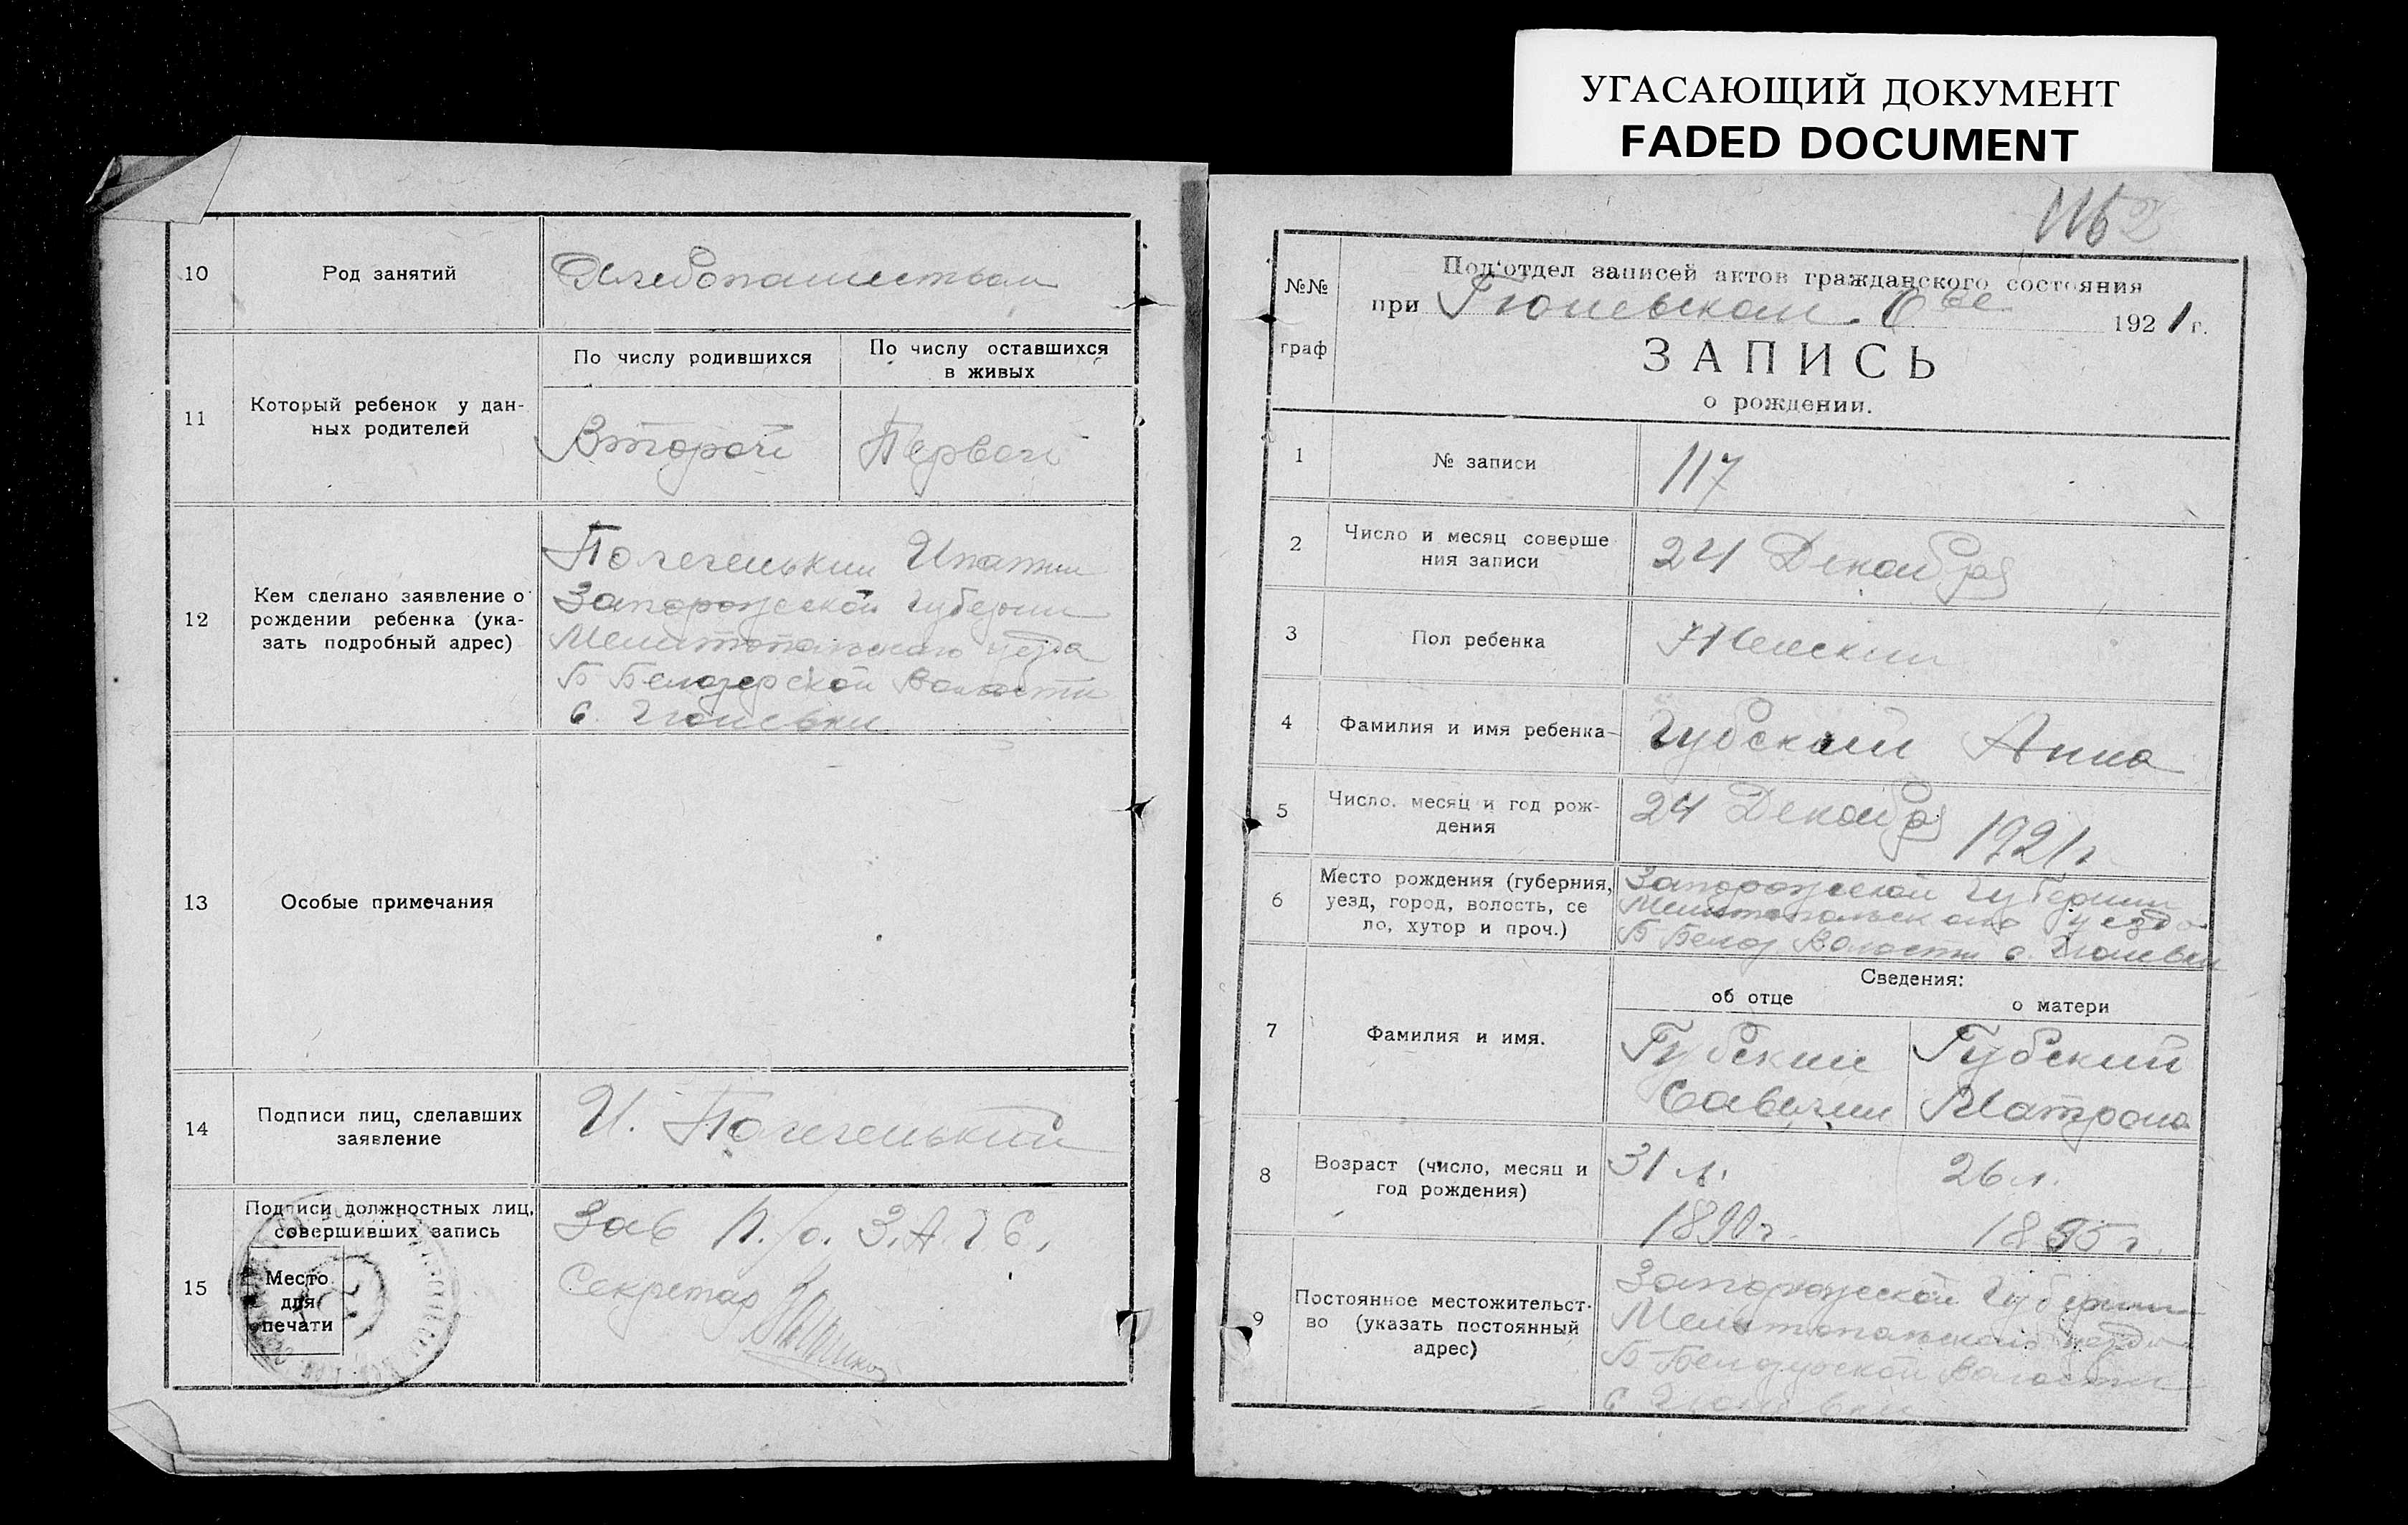 УГАСАЮЩИЙ ДОКУМЕНТ
FADED DOCUMENT
10
Род занятий
Хлебопашеством
11
Который ребенок у дан-
ных родителей
По числу родившихся
По числу оставшихся
в живых
Второй
Первой
12
Кем сделано заявление о
рождении ребенка (ука-
зать подробный адрес)
Полегенький Ипатий
Запорожской Губернии
Мелитопольского уезда
Б Белозерской Волости
с. Гюневки
13
Особые примечания
14
Подписи лиц, сделавших
заявление
И. Полегенький
15
Подписи должностных лиц,
совершивших запись
Место
для
печати
Зав П./о. З.А.Г.С.
Секретар
116
№№
граф
Под'отдел записей актов гражданского состояния
при Гюневском 1921 г.
ЗАПИСЬ
о рождении.
1
№ записи
117
2
Число и месяц соверше
ния записи
24 Декабря
3
Пол ребенка
Женский
4
Фамилия и имя ребенка
Губский Анна
5
Число, месяц и год рож-
дения
24 Декабря 1921 г
6
Место рождения (губерния,
уезд, город, волость, се
ло, хутор и проч.)
Запорожской Губернии
Мелитопольского уезда
Б Белоз Волости с. Гюневки
7
Фамилия и имя.
Сведения:
об отце
о матери
Губский
Савелий
Губский
Матрона
8
Возраст (число, месяц и
год рождения)
31 л.
1890 г.
26 л.
1895 г.
9
Постоянное местожительст-
во (указать постоянный
адрес)
Запорожской Губернии
Мелитопольского уезда
Б Белозерской Волости
с Гюневки